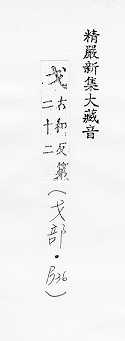 精嚴新集大藏音
戈古和反第
二十二
（戈部．B36）